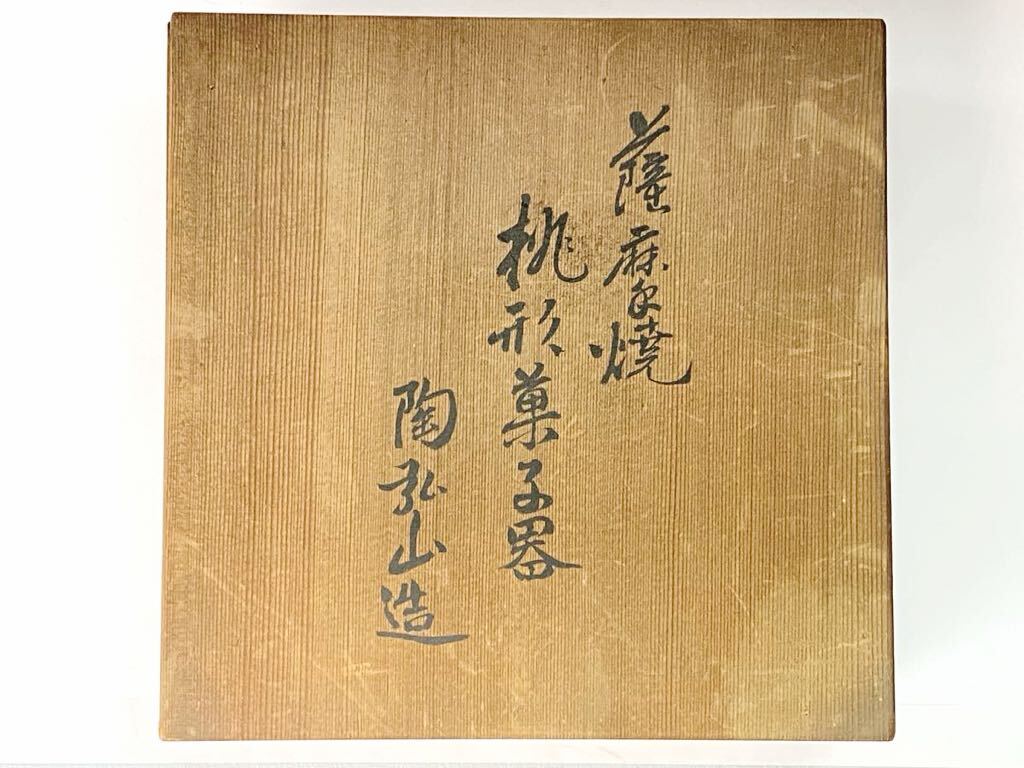 薩摩焼
桃形菓子器
陶弘山造